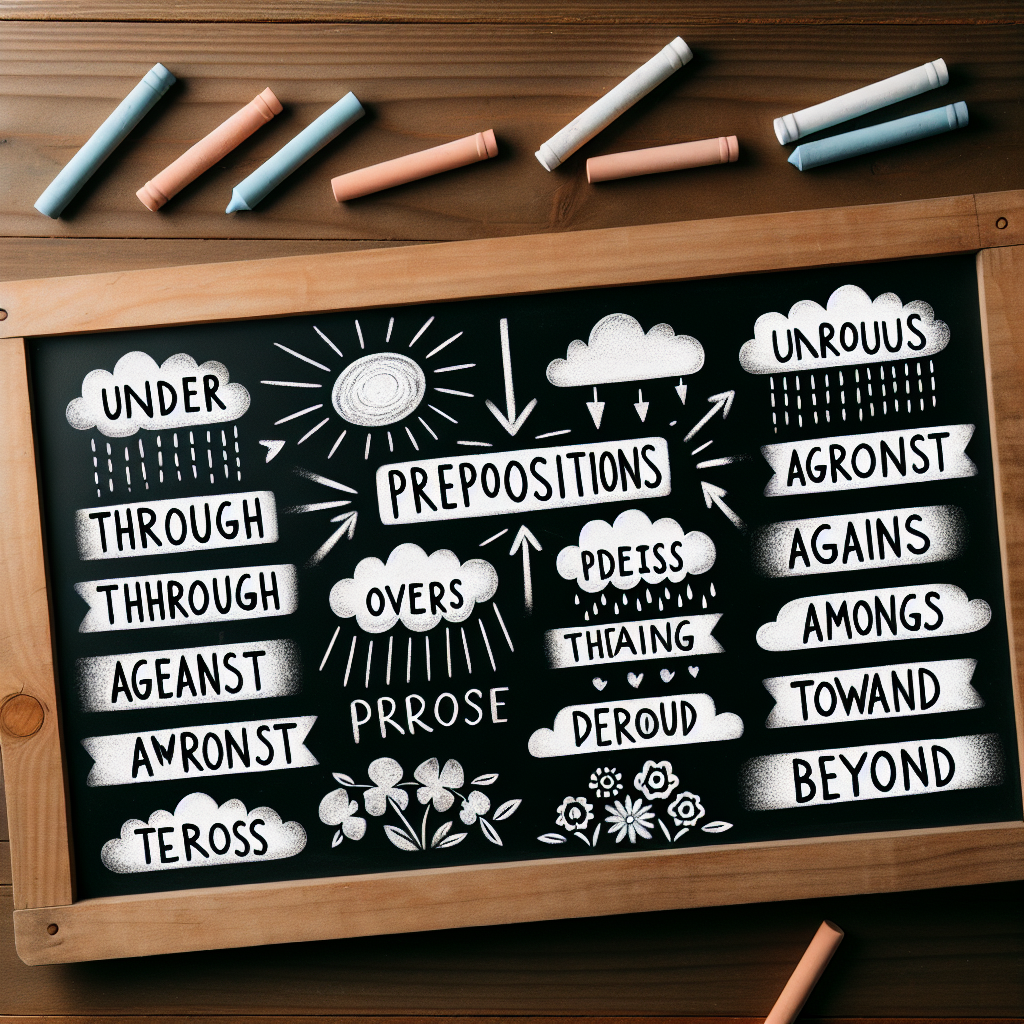 UNDER
THROUGH
THHROUGH
AGEANST
AWRONST
TEROSS
PREPOOSITIONS
OVERS
PRROSE
PDEISS
THTAING
DEROUD
UNROUUS
AGRONST
AGAINS
AMONGS
TOWAND
BEYOND